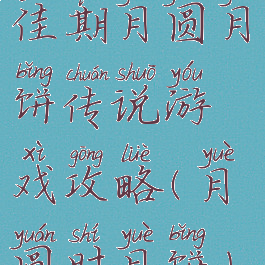 佳期月圆月
bǐng chuán shuō yóu
饼传说游
xì gōng lüè yuè
戏攻略(月
yuán shí yuè bǐng
圆时月饼)